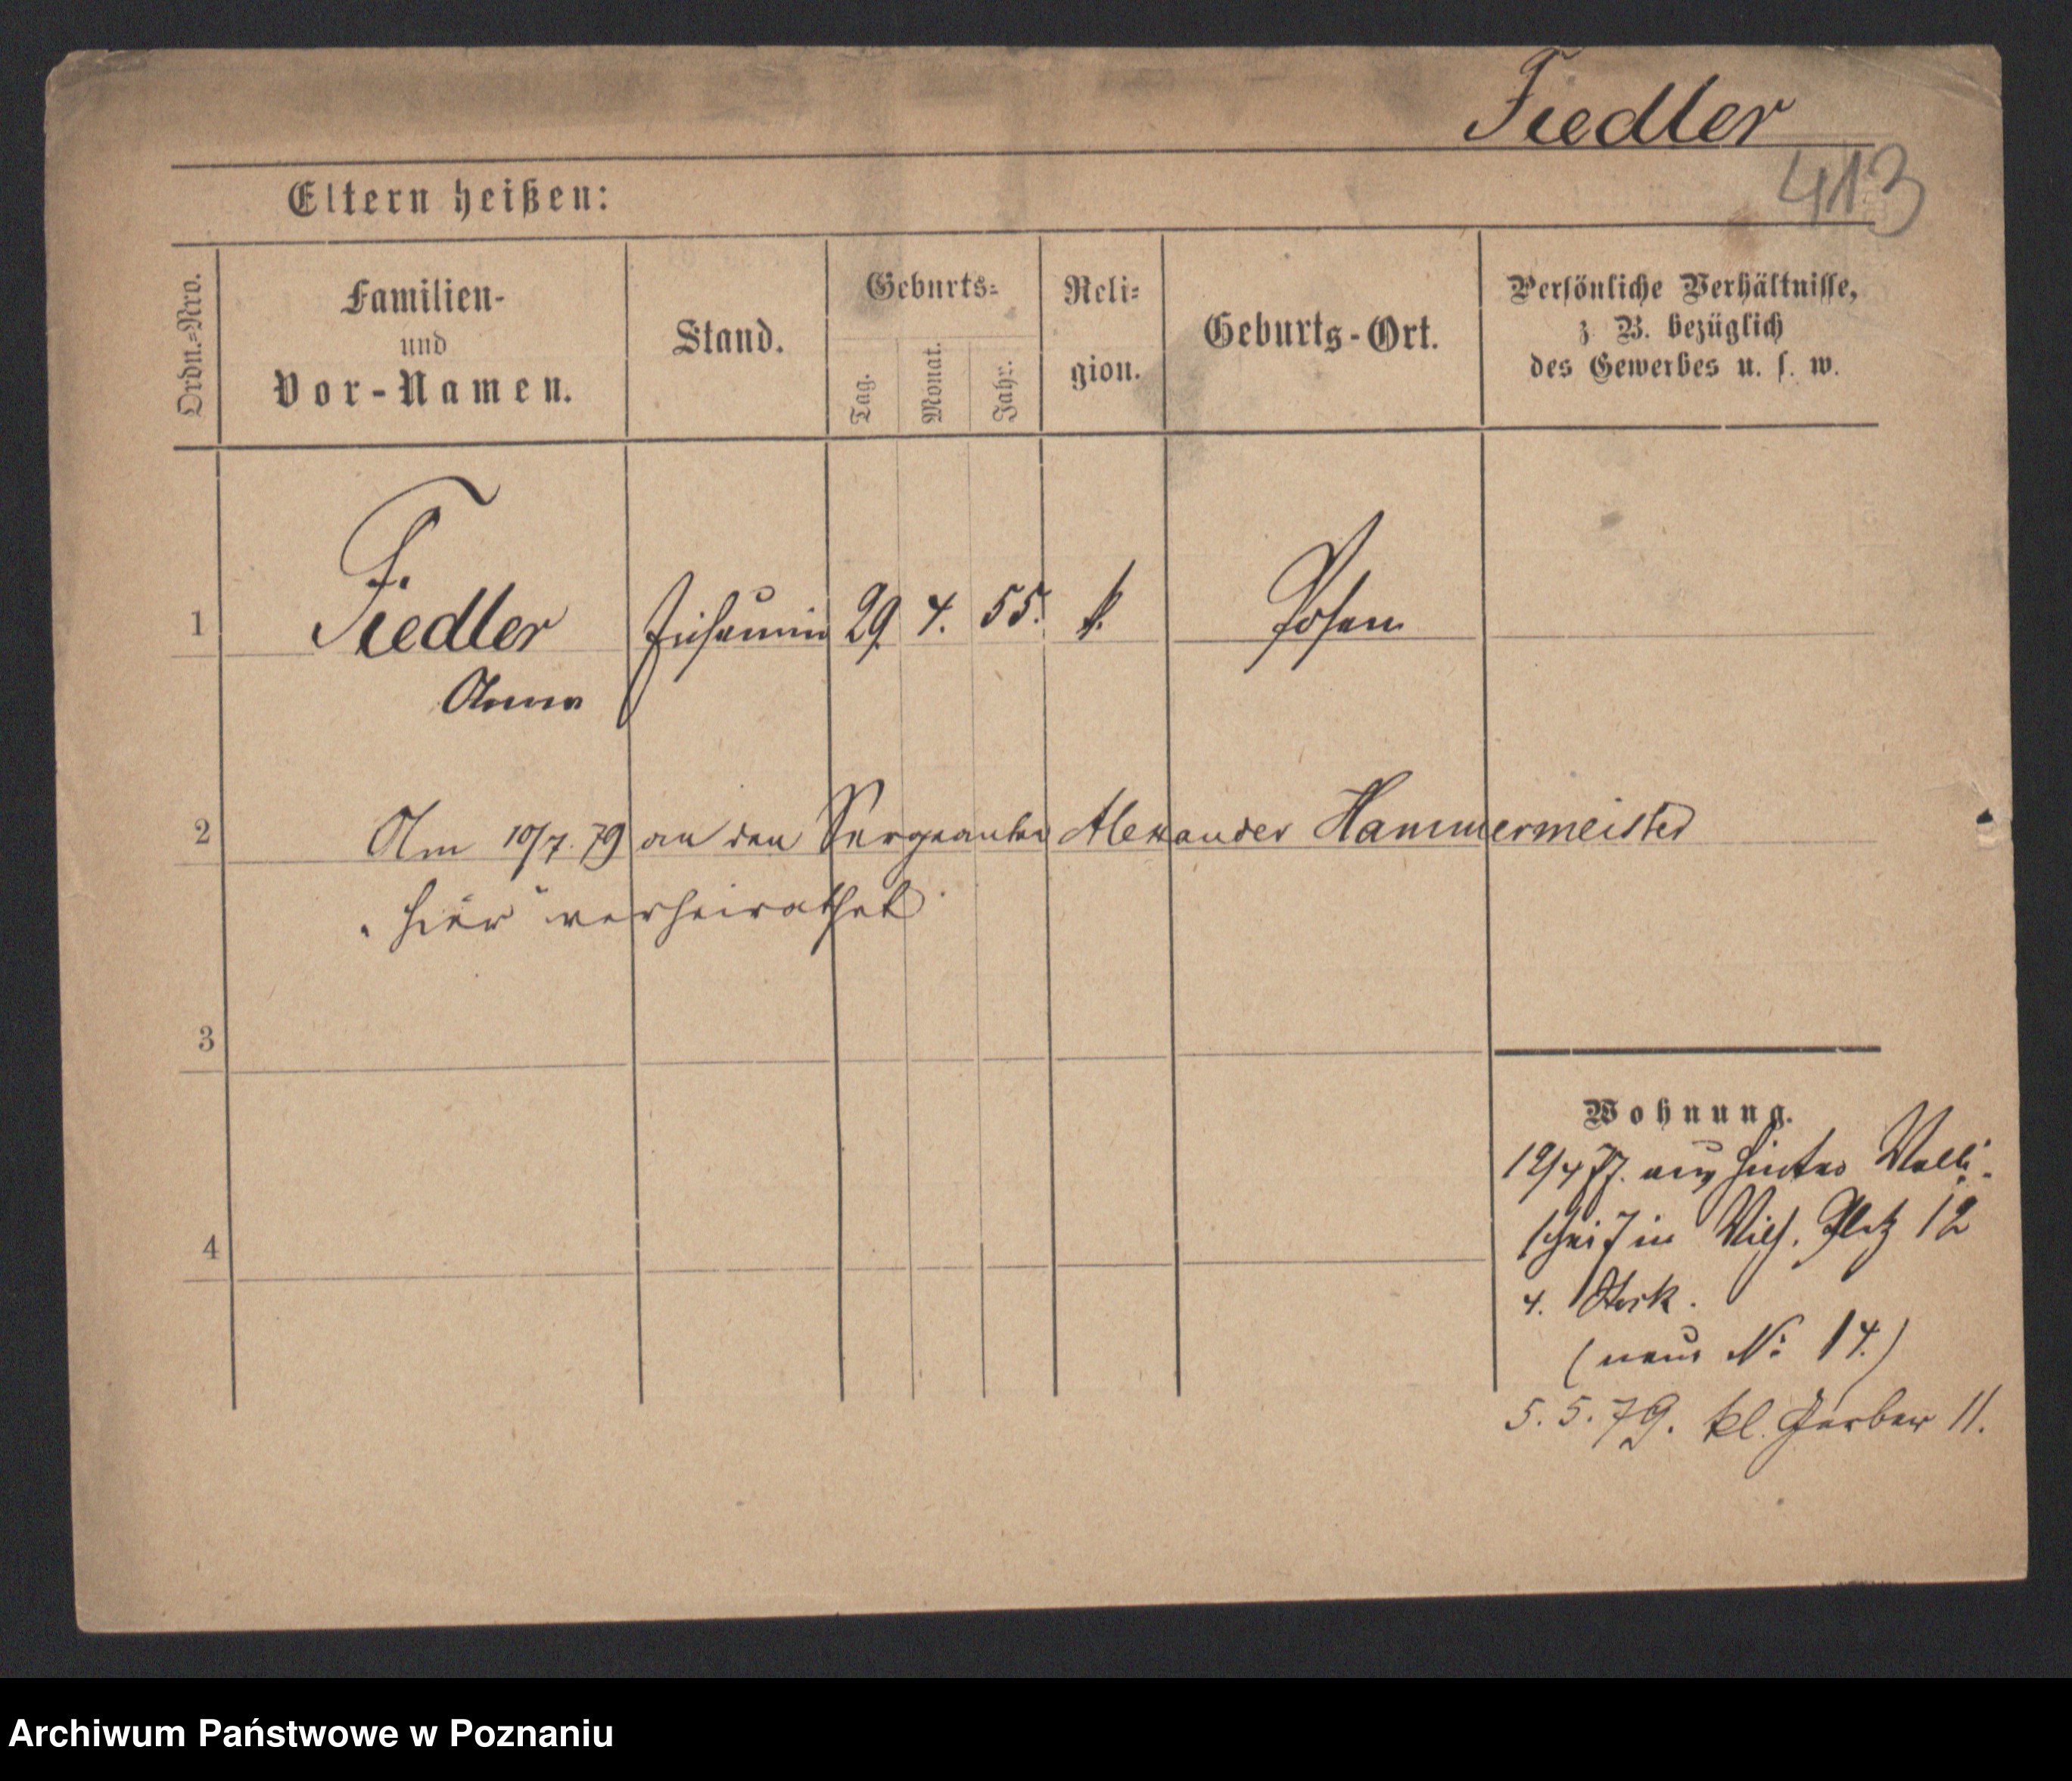 Fiedler
413
Eltern heißen:
Ordn.-Nro.
Familien-
und
Vor-Namen.
Stand.
Geburts-
Tag.
Monat.
Jahr.
Reli-
gion.
Geburts-Ort.
Persönliche Verhältnisse,
z. B. bezüglich
des Gewerbes u. s. w.
1
F.
Fiedler 29. 4. 55. k. Posen
Anna
2
Am 10/7. 79 an den Sergeanten Alexander Hammermeister
hier verheirathet
3
Wohnung.
12/4 77. aus Hinter Walli-
schei 7 in Wilh. Platz 12
4. Stock.
(neue No 14.)
5. 5. 79. kl. Gerber 11.
4
Archiwum Państwowe w Poznaniu